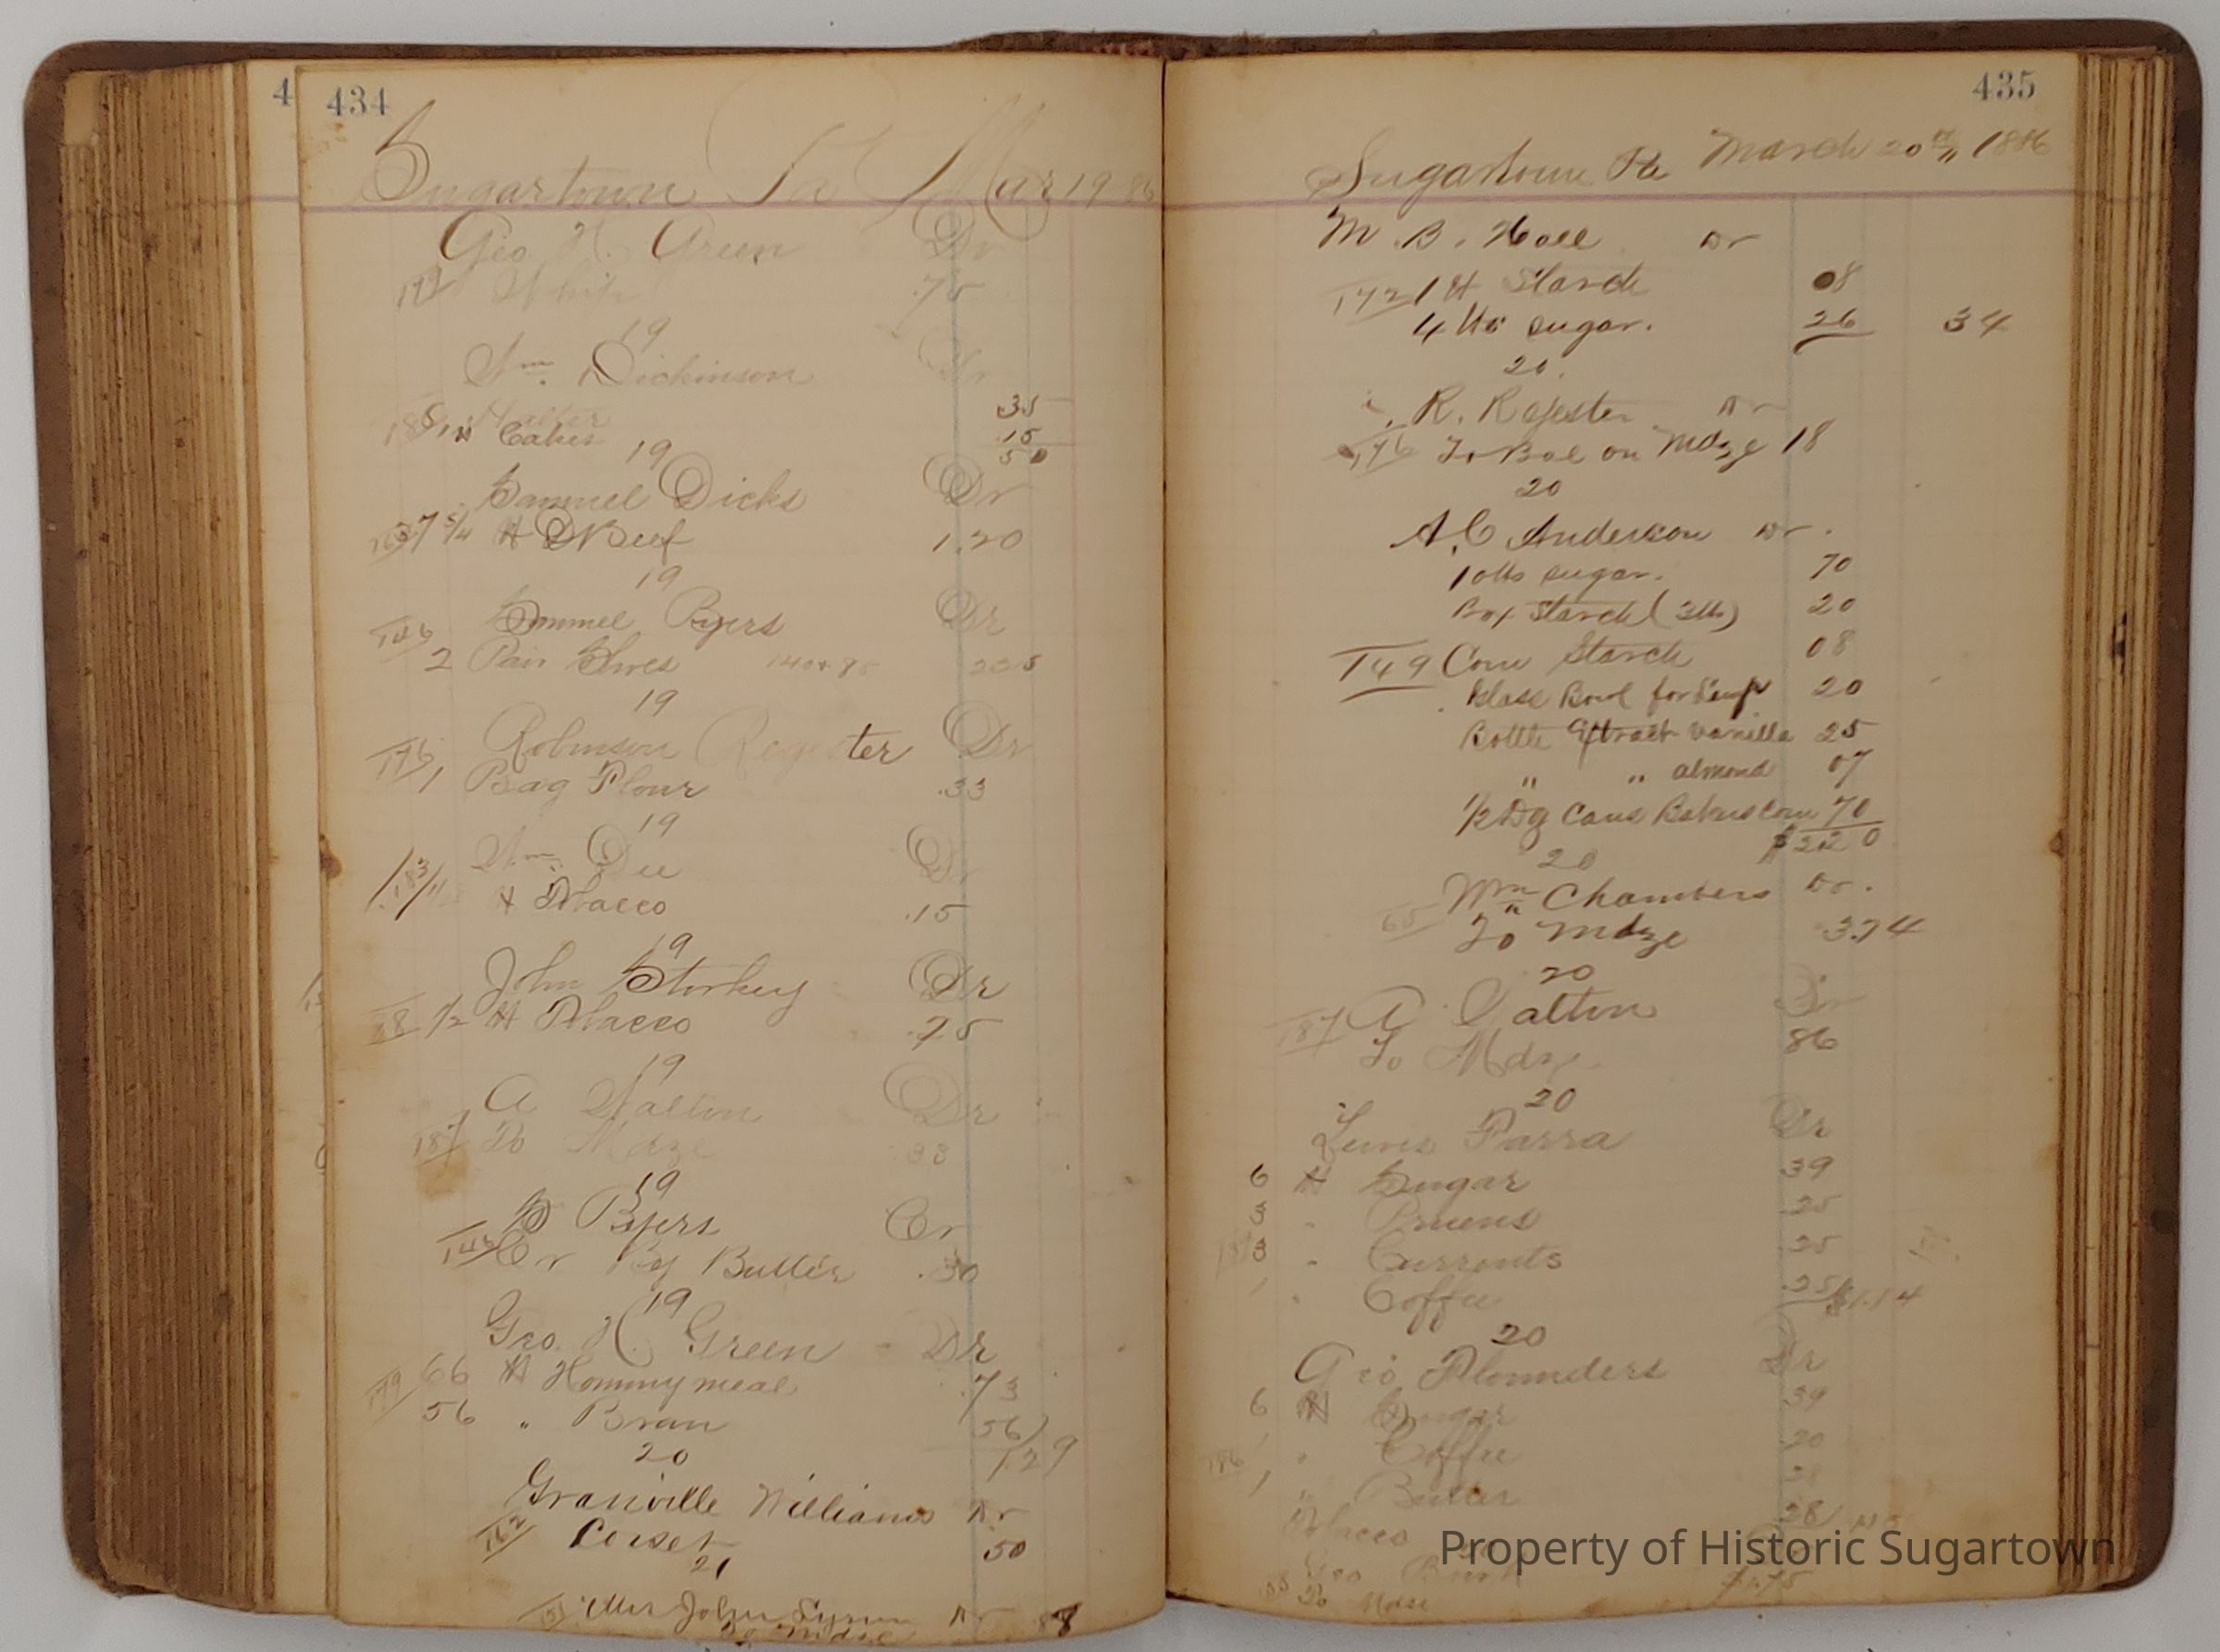 4
434
Sugartown Pa Mar 19 86
Geo. H. Green Dr
Whip .75
19
Wm. Dickinson Dr
Halter .35
Cakes .15
50
19
Samuel Dicks Dr
D Beef 1.20
19
Sammel Byers Dr
146
2 Pair Shoes 140 + 85 225
19
Robinson Register Dr
176
1 Bag Flour .33
19
Wm. Dr
183
Tobacco .15
19
John Storkey Dr
1/2 # Tobacco .25
19
A Walton Dr
187 To Mdze 33
19
S Byers Cr
146 Cr By Butter .30
19
Geo. H. Green Dr
179 66 # Hommy meal .73
56 " Bran 56
1.29
20
Granville Williams Dr
162 Corset 50
21
Mrs John Dr 88
To Mdse
435
Sugartown Pa March 20th 1886
M. B. Hall Dr
142 1 # Starch 08
4 lbs sugar. 26 34
20.
R. Regester Dr
176 To Bal on Mdze 18
20
A. C Anderson Dr.
10 lbs sugar. 70
Box Starch (3 lb) 20
149 Corn Starch 08
Glass Bowl for Lamp 20
Bottle Extract Vanilla 25
" " almond 07
1/2 Dz Cans Bakers Corn 70
$2.20
20
Wm Chambers Dr.
65 To Mdze 3.74
20
187 A Walton Dr
To Mdze 86
20
Lewis Parra Dr
6 # Sugar 39
3 " Pruens .25
3 " Currents .25
1 " Coffee .25 $1.14
20
Geo Flounders Dr
6 # Sugar 39
186 1 " Coffee 20
1 " Butter
Tobacco 28
Geo
To Mdse
Property of Historic Sugartown